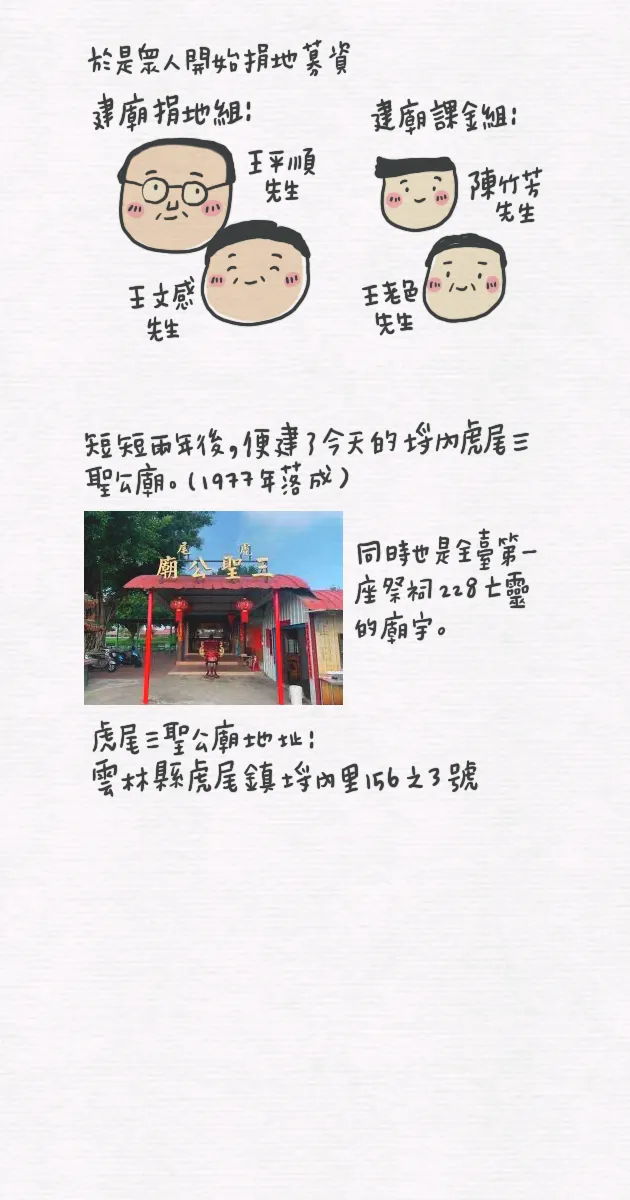 於是眾人開始捐地募資
建廟捐地組:
王平順
先生
王文感
先生
建廟課金組:
陳竹芳
先生
王老色
先生
短短兩年後,便建了今天的埒內虎尾三
聖公廟。(1977年落成)
虎尾
三聖公廟
同時也是全臺第一
座祭祠228亡靈
的廟宇。
虎尾三聖公廟地址:
雲林縣虎尾鎮埒內里156之3號